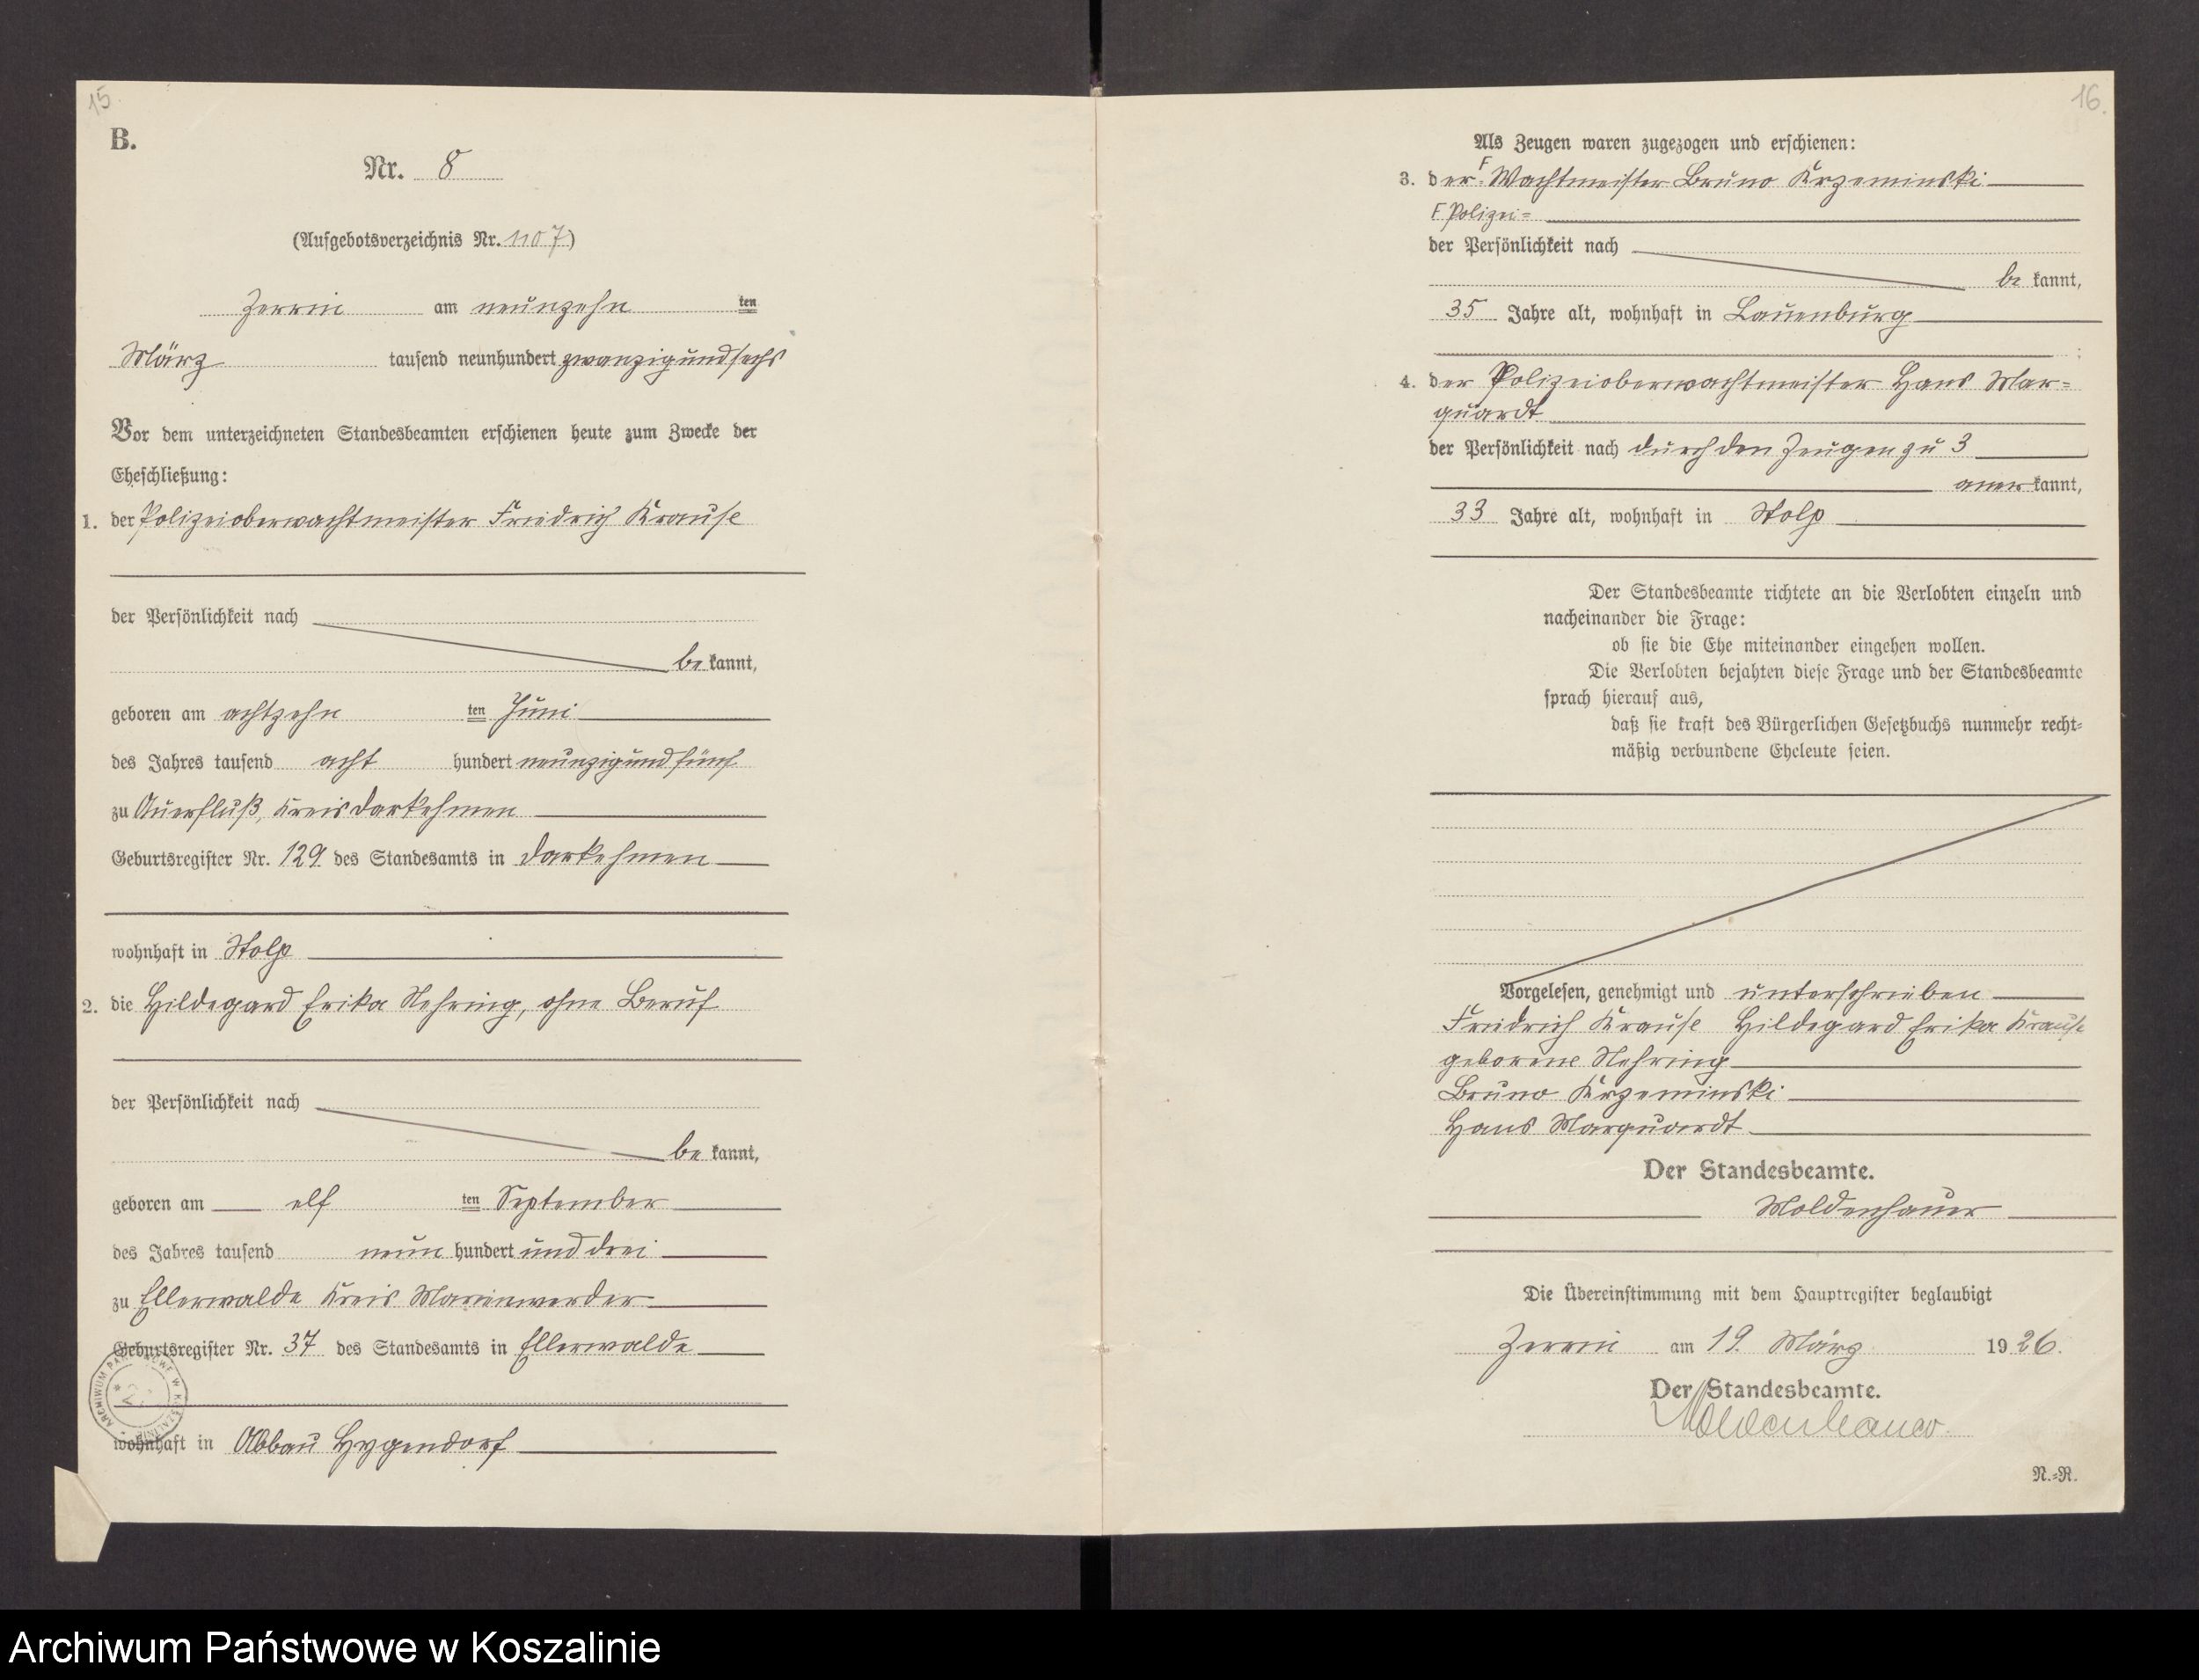 15.
B.
Nr. 8
(Aufgebotsverzeichnis Nr. 1107)
Zerrin am neunzehnten
März tausend neunhundert zwanzigundsechs
Vor dem unterzeichneten Standesbeamten erschienen heute zum Zwecke der
Eheschließung:
1. der Polizeioberwachtmeister Friedrich Krause
der Persönlichkeit nach
bekannt,
geboren am achtzehnten Juni
des Jahres tausend acht hundert neunzigundfünf
zu Auerfluß, Kreis Darkehmen
Geburtsregister Nr. 129 des Standesamts in Darkehmen
wohnhaft in Stolp
2. die Hildegard Erika Nehring, ohne Beruf
der Persönlichkeit nach
bekannt,
geboren am elften September
des Jahres tausend neun hundert und drei
zu Ellerwalde Kreis Marienwerder
Geburtsregister Nr. 37 des Standesamts in Ellerwalde
ARCHIWUM PAŃSTWOWE W KOSZALINIE
wohnhaft in Abbau Hygendorf
16.
Als Zeugen waren zugezogen und erschienen:
3. der F Wachtmeister Bruno Krzeminski
F Polizei=
der Persönlichkeit nach
bekannt,
35 Jahre alt, wohnhaft in Lauenburg
4. der Polizeioberwachtmeister Hans Mar=
quardt
der Persönlichkeit nach durch den Zeugen zu 3
anerkannt,
33 Jahre alt, wohnhaft in Stolp
Der Standesbeamte richtete an die Verlobten einzeln und
nacheinander die Frage:
ob sie die Ehe miteinander eingehen wollen.
Die Verlobten bejahten diese Frage und der Standesbeamte
sprach hierauf aus,
daß sie kraft des Bürgerlichen Gesetzbuchs nunmehr recht=
mäßig verbundene Eheleute seien.
Vorgelesen, genehmigt und unterschrieben
Friedrich Krause Hildegard Erika Krause
geborene Nehring
Bruno Krzeminski
Hans Marquardt
Der Standesbeamte.
Moldenhauer
Die Übereinstimmung mit dem Hauptregister beglaubigt
Zerrin am 19. März 1926.
Der Standesbeamte.
Moldenhauer.
N.=R.
Archiwum Państwowe w Koszalinie